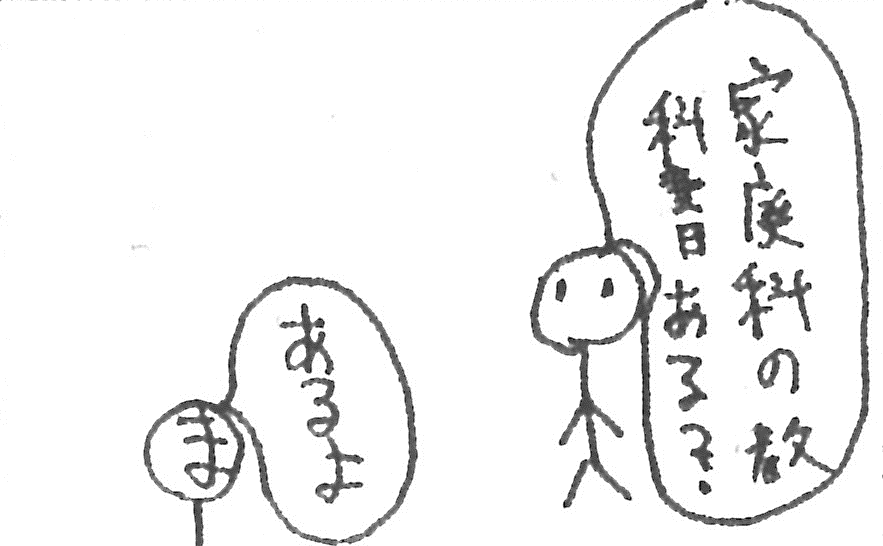 家庭科の教
科書ある?
あるよ
ま